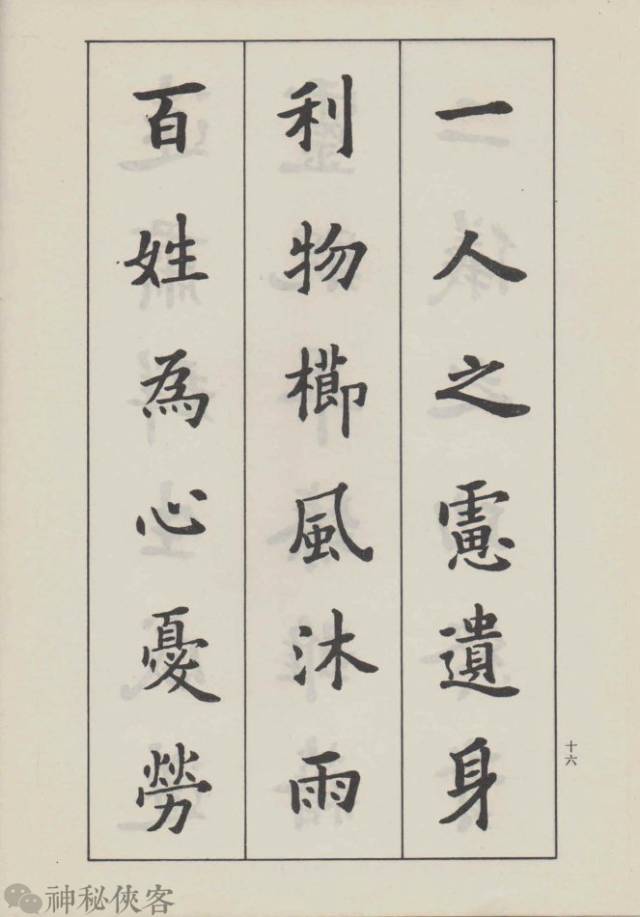 一人之慮遺身
利物櫛風沐雨
百姓為心憂勞
十六
神秘俠客